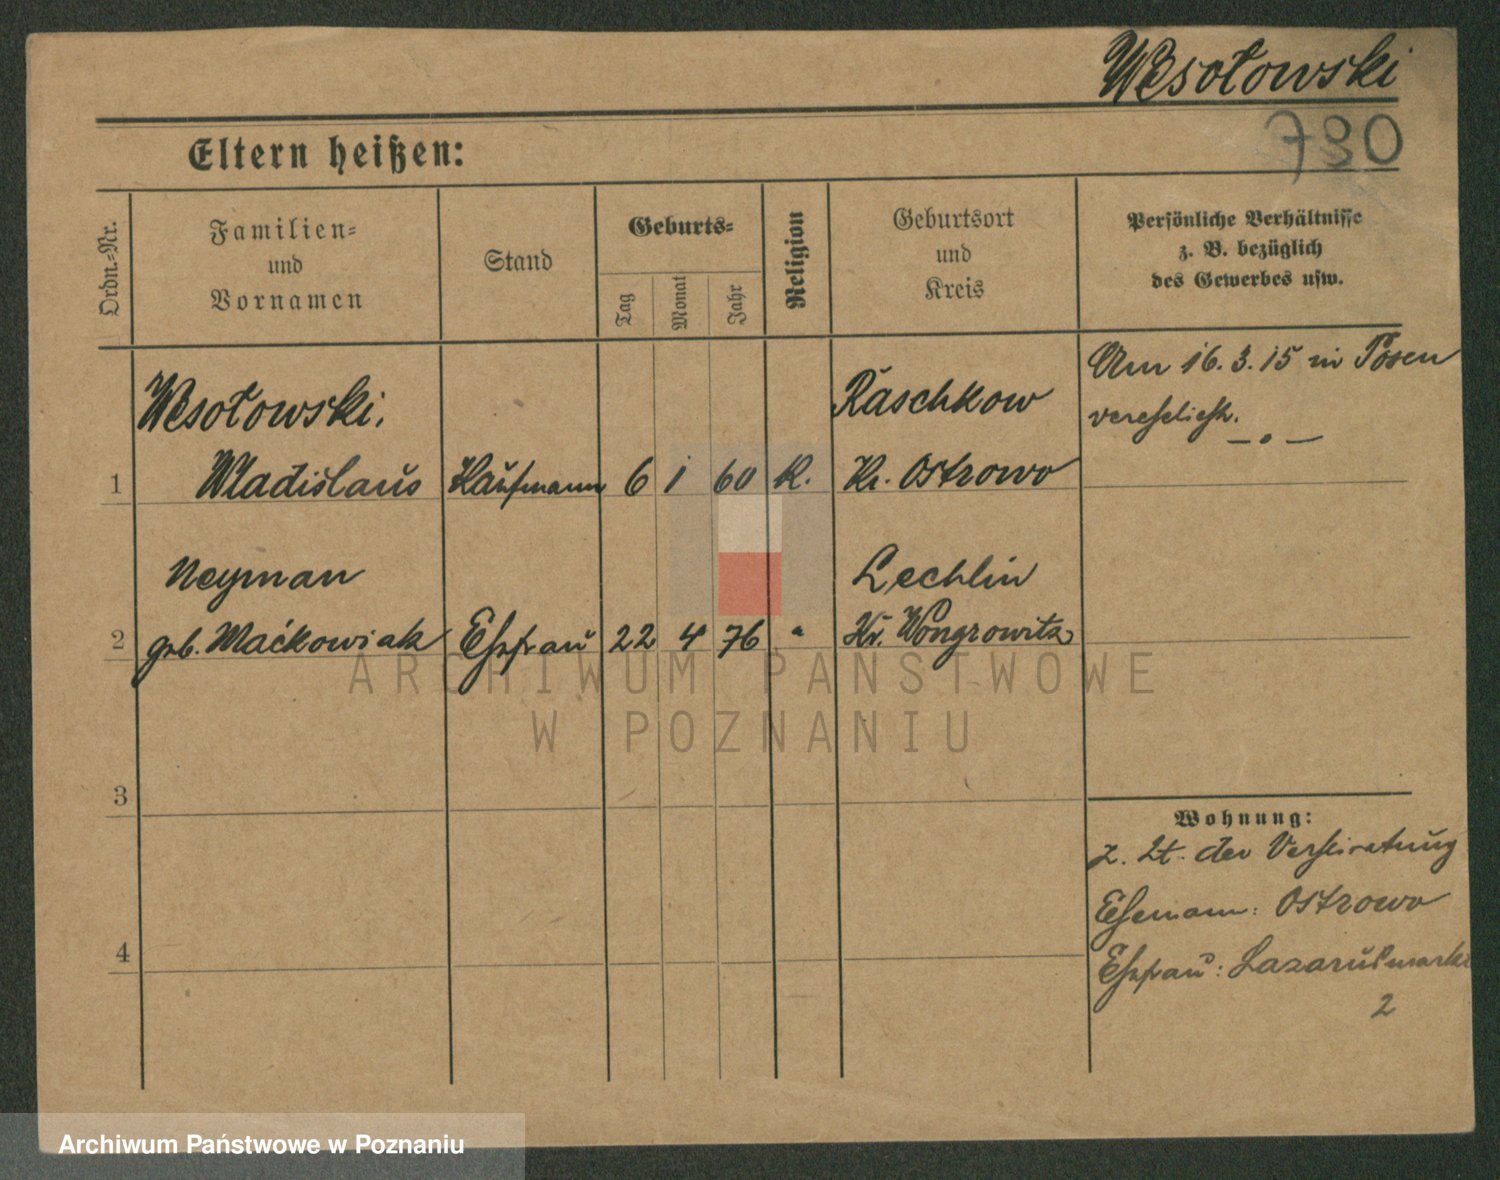 Wesołowski
790
Eltern heißen:
Ordn.-Nr.
Familien-
und
Vornamen
Stand
Geburts-
Tag
Monat
Jahr
Religion
Geburtsort
und
Kreis
Persönliche Verhältnisse
z. B. bezüglich
des Gewerbes usw.
Am 16.3.15 in Posen
verehelicht.
Wesołowski,
Raschkow
1 Wladislaus Kaufmann 6 1 60 K. Kr. Ostrowo
Neyman
Lechlin
2 geb. Maćkowiak Ehefrau 22 4 76 " Kr. Wongrowitz
ARCHIWUM PAŃSTWOWE
W POZNANIU
3
Wohnung:
z. Zt. der Verheiratung
Ehemann: Ostrowo
4
Ehefrau: Lazarusmarkt
2
Archiwum Państwowe w Poznaniu